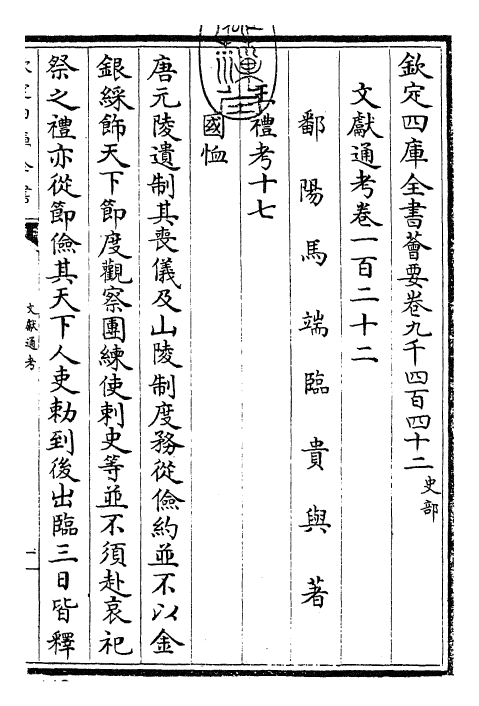 欽定四庫全書薈要卷九千四百四十二 史部
文獻通考卷一百二十二
鄱陽馬端臨貴與著
王禮考十七
國恤
唐元陵遺制其喪儀及山陵制度務從儉約並不以金
銀綵飾天下節度觀察團練使刺史等並不須赴哀祀
祭之禮亦從節儉其天下人吏勅到後出臨三日皆釋
文獻通考